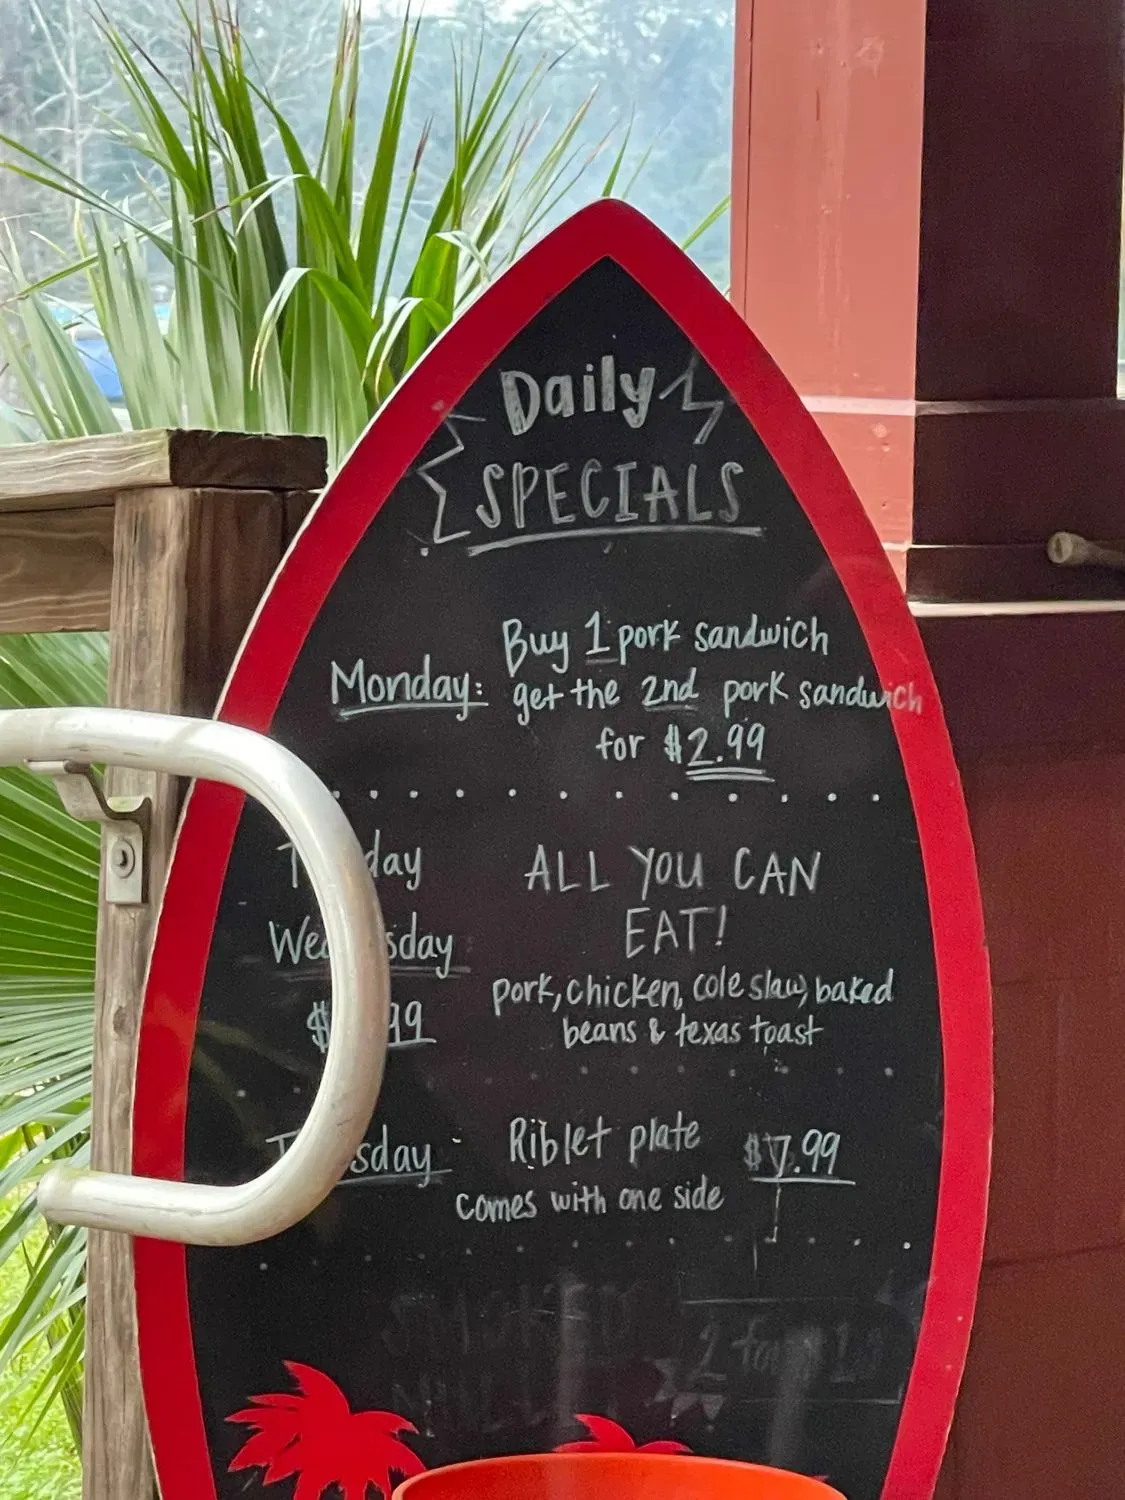 Daily
SPECIALS
Monday:
Buy 1 pork sandwich
get the 2nd pork sandwich
for $2.99
ALL YOU CAN
EAT!
pork, chicken, cole slaw, baked
beans & texas toast
Riblet plate $7.99
comes with one side
SMOKED
MULLET